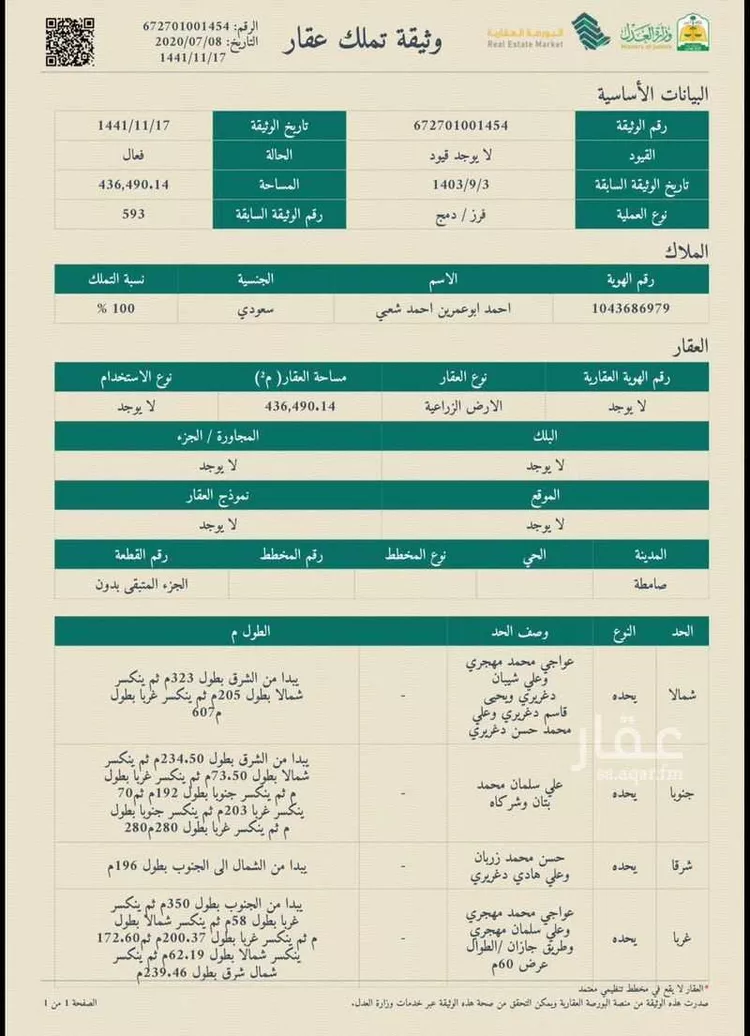 الرقم: 672701001454
التاريخ: 2020/07/08
1441/11/17
وثيقة تملك عقار
البورصة العقارية
Real Estate Market
وزارة العدل
Ministry of Justice
البيانات الأساسية
رقم الوثيقة 672701001454 تاريخ الوثيقة 1441/11/17
القيود لا يوجد قيود الحالة فعال
تاريخ الوثيقة السابقة 1403/9/3 المساحة 436,490.14
نوع العملية فرز / دمج رقم الوثيقة السابقة 593
الملاك
رقم الهوية الاسم الجنسية نسبة التملك
1043686979 احمد ابوعمرين احمد شعبي سعودي 100 %
العقار
رقم الهوية العقارية نوع العقار مساحة العقار( م²) نوع الاستخدام
لا يوجد الارض الزراعية 436,490.14 لا يوجد
البلك المجاورة / الجزء
لا يوجد لا يوجد
الموقع نموذج العقار
لا يوجد لا يوجد
المدينة الحي نوع المخطط رقم المخطط رقم القطعة
صامطة الجزء المتبقى بدون
الحد النوع وصف الحد الطول م
شمالا يحده
عواجي محمد مهجري
وعلي شيبان
دغريري ويحيى
قاسم دغريري وعلي
محمد حسن دغريري
-
يبدا من الشرق بطول 323م ثم ينكسر
شمالا بطول 205م ثم ينكسر غربا بطول
607م
جنوبا يحده
علي سلمان محمد
بتان وشركاه
-
يبدا من الشرق بطول 234.50م ثم ينكسر
شمالا بطول 73.50م ثم ينكسر غربا بطول
70م ثم ينكسر جنوبا بطول 192م ثم
ينكسر غربا 203م ثم ينكسر جنوبا بطول
280م ثم ينكسر غربا بطول 280م
شرقا يحده
حسن محمد زربان
وعلي هادي دغريري
-
يبدا من الشمال الى الجنوب بطول 196م
غربا يحده
عواجي محمد مهجري
وعلي سلمان مهجري
وطريق جازان /الطوال
عرض 60م
-
يبدا من الجنوب بطول 350م ثم ينكسر
غربا بطول 58م ثم ينكسر شمالا بطول
172.60م ثم ينكسر غربا بطول 200.37م ثم
ينكسر شمالا بطول 62.19م ثم ينكسر
شمال شرق بطول 239.46م
عقار
sa.aqar.fm
*العقار لا يقع في مخطط تنظيمي معتمد
صدرت هذه الوثيقة من منصة البورصة العقارية ويمكن التحقق من صحة هذه الوثيقة عبر خدمات وزارة العدل.
الصفحة 1 من 1